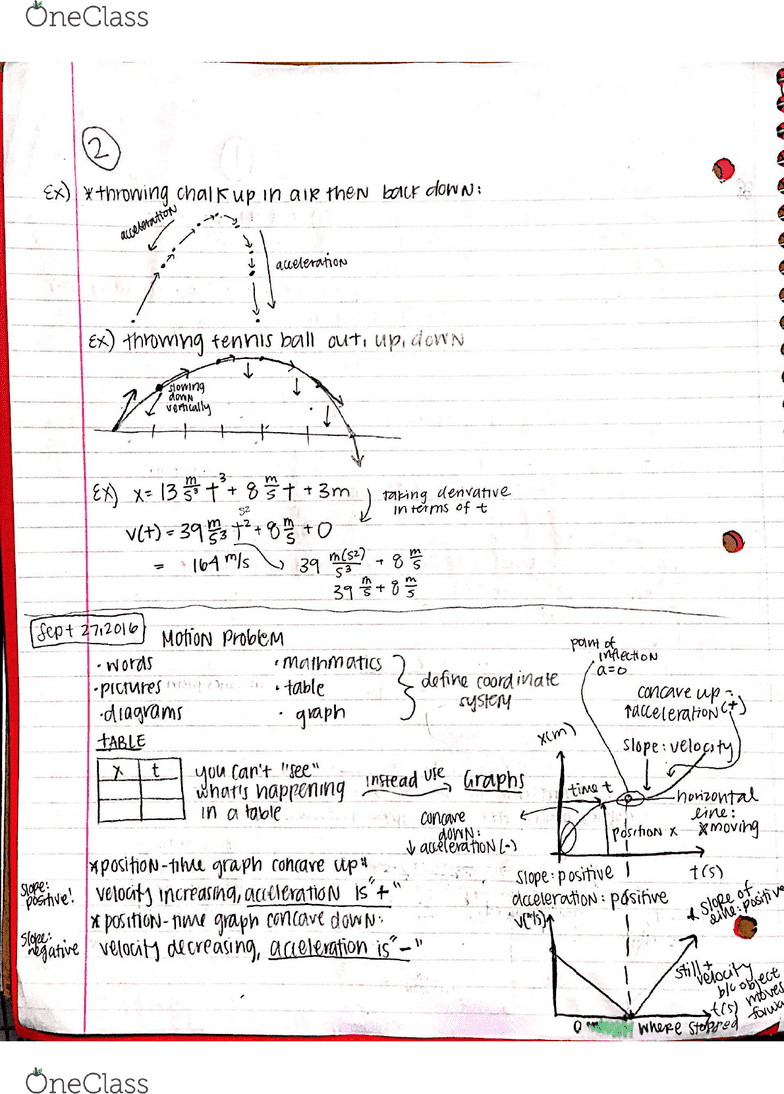 OneClass
2
Ex) * throwing chalk up in air then back down:
acceleration
acceleration
Ex) throwing tennis ball out, up, down
slowing
down
vertically
Ex) x = 13 m/s³ t³ + 8 m/s t + 3m
taking derivative
in terms of t
v(t) = 39 m/s³ t² + 8 m/s + 0
s²
= 164 m/s
39 m(s²)/s³ + 8 m/s
39 m/s + 8 m/s
Sept 27, 2016
Motion Problem
• words
• pictures
• diagrams
• mathmatics
• table
• graph
define coordinate
system
TABLE
x t
you can't "see"
what's happening
in a table
instead use
Graphs
point of
inflection
a=0
concave up =
↑acceleration (+)
slope: velocity
x(m)
time t
horizontal
line:
moving
position x
t(s)
concave
down:
↓ acceleration (-)
* position-time graph concave up:
slope:
positive!
velocity increasing, acceleration is "+"
* position-time graph concave down:
slope:
negative
velocity decreasing, acceleration is "-"
slope: positive
acceleration: positive
v(m/s)
slope of
line: positive
still +
velocity
b/c object
moves
forward
t(s)
0
where stopped
OneClass